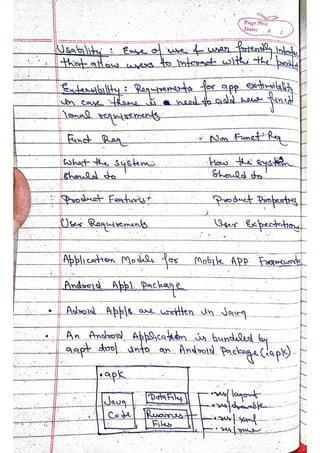 Page No.:
Date: / /
Usability : Ease of use & user friendly
that allow users to interact with the product
Extensibility : Requirements for app extensibility
in case there is a need to add new funct
ional requirements
Funct Req
Non Funct Req
What the system
should do
How the system
should do
Product Features
Product Properties
User Requirements
User Expectations
Application Models for Mobile APP Framework
Android Appl Package
• Adroid Appls are written in Java
• An Android Application is bundled by
aapt tool into an Android Package (.apk)
.apk
Java
Code
Data Files
Files
res/layout
res/drawable
res/xml